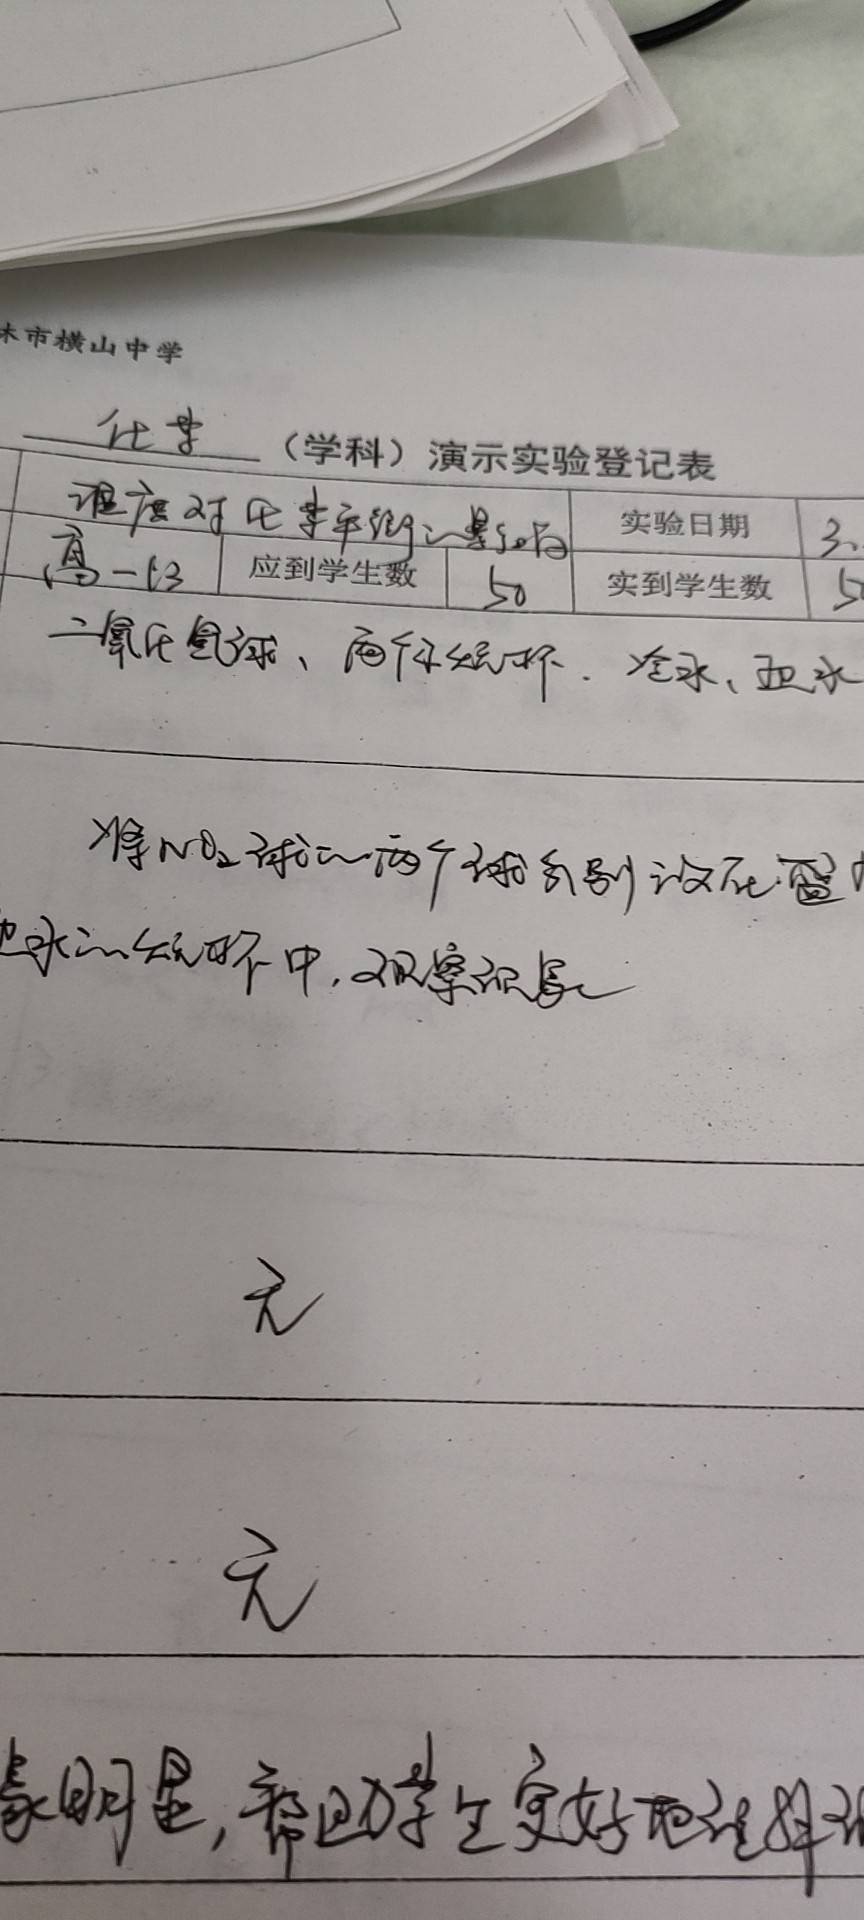 木市横山中学
化学（学科）演示实验登记表
温度对化学平衡的影响 实验日期 3.
高一13 应到学生数 50 实到学生数 50
二氧化氮球、两个烧杯、冷水、热水
将NO₂球的两个球分别放在盛
热水的烧杯中，观察现象
无
无
象明显，帮助学生更好地理解